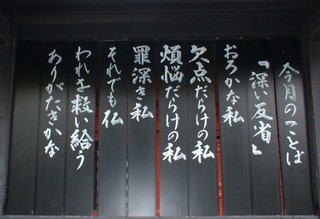 今月のことば
「深い反省」
おろかな私
欠点だらけの私
煩悩だらけの私
罪深き私
それでも仏
われを救い給う
ありがたきかな